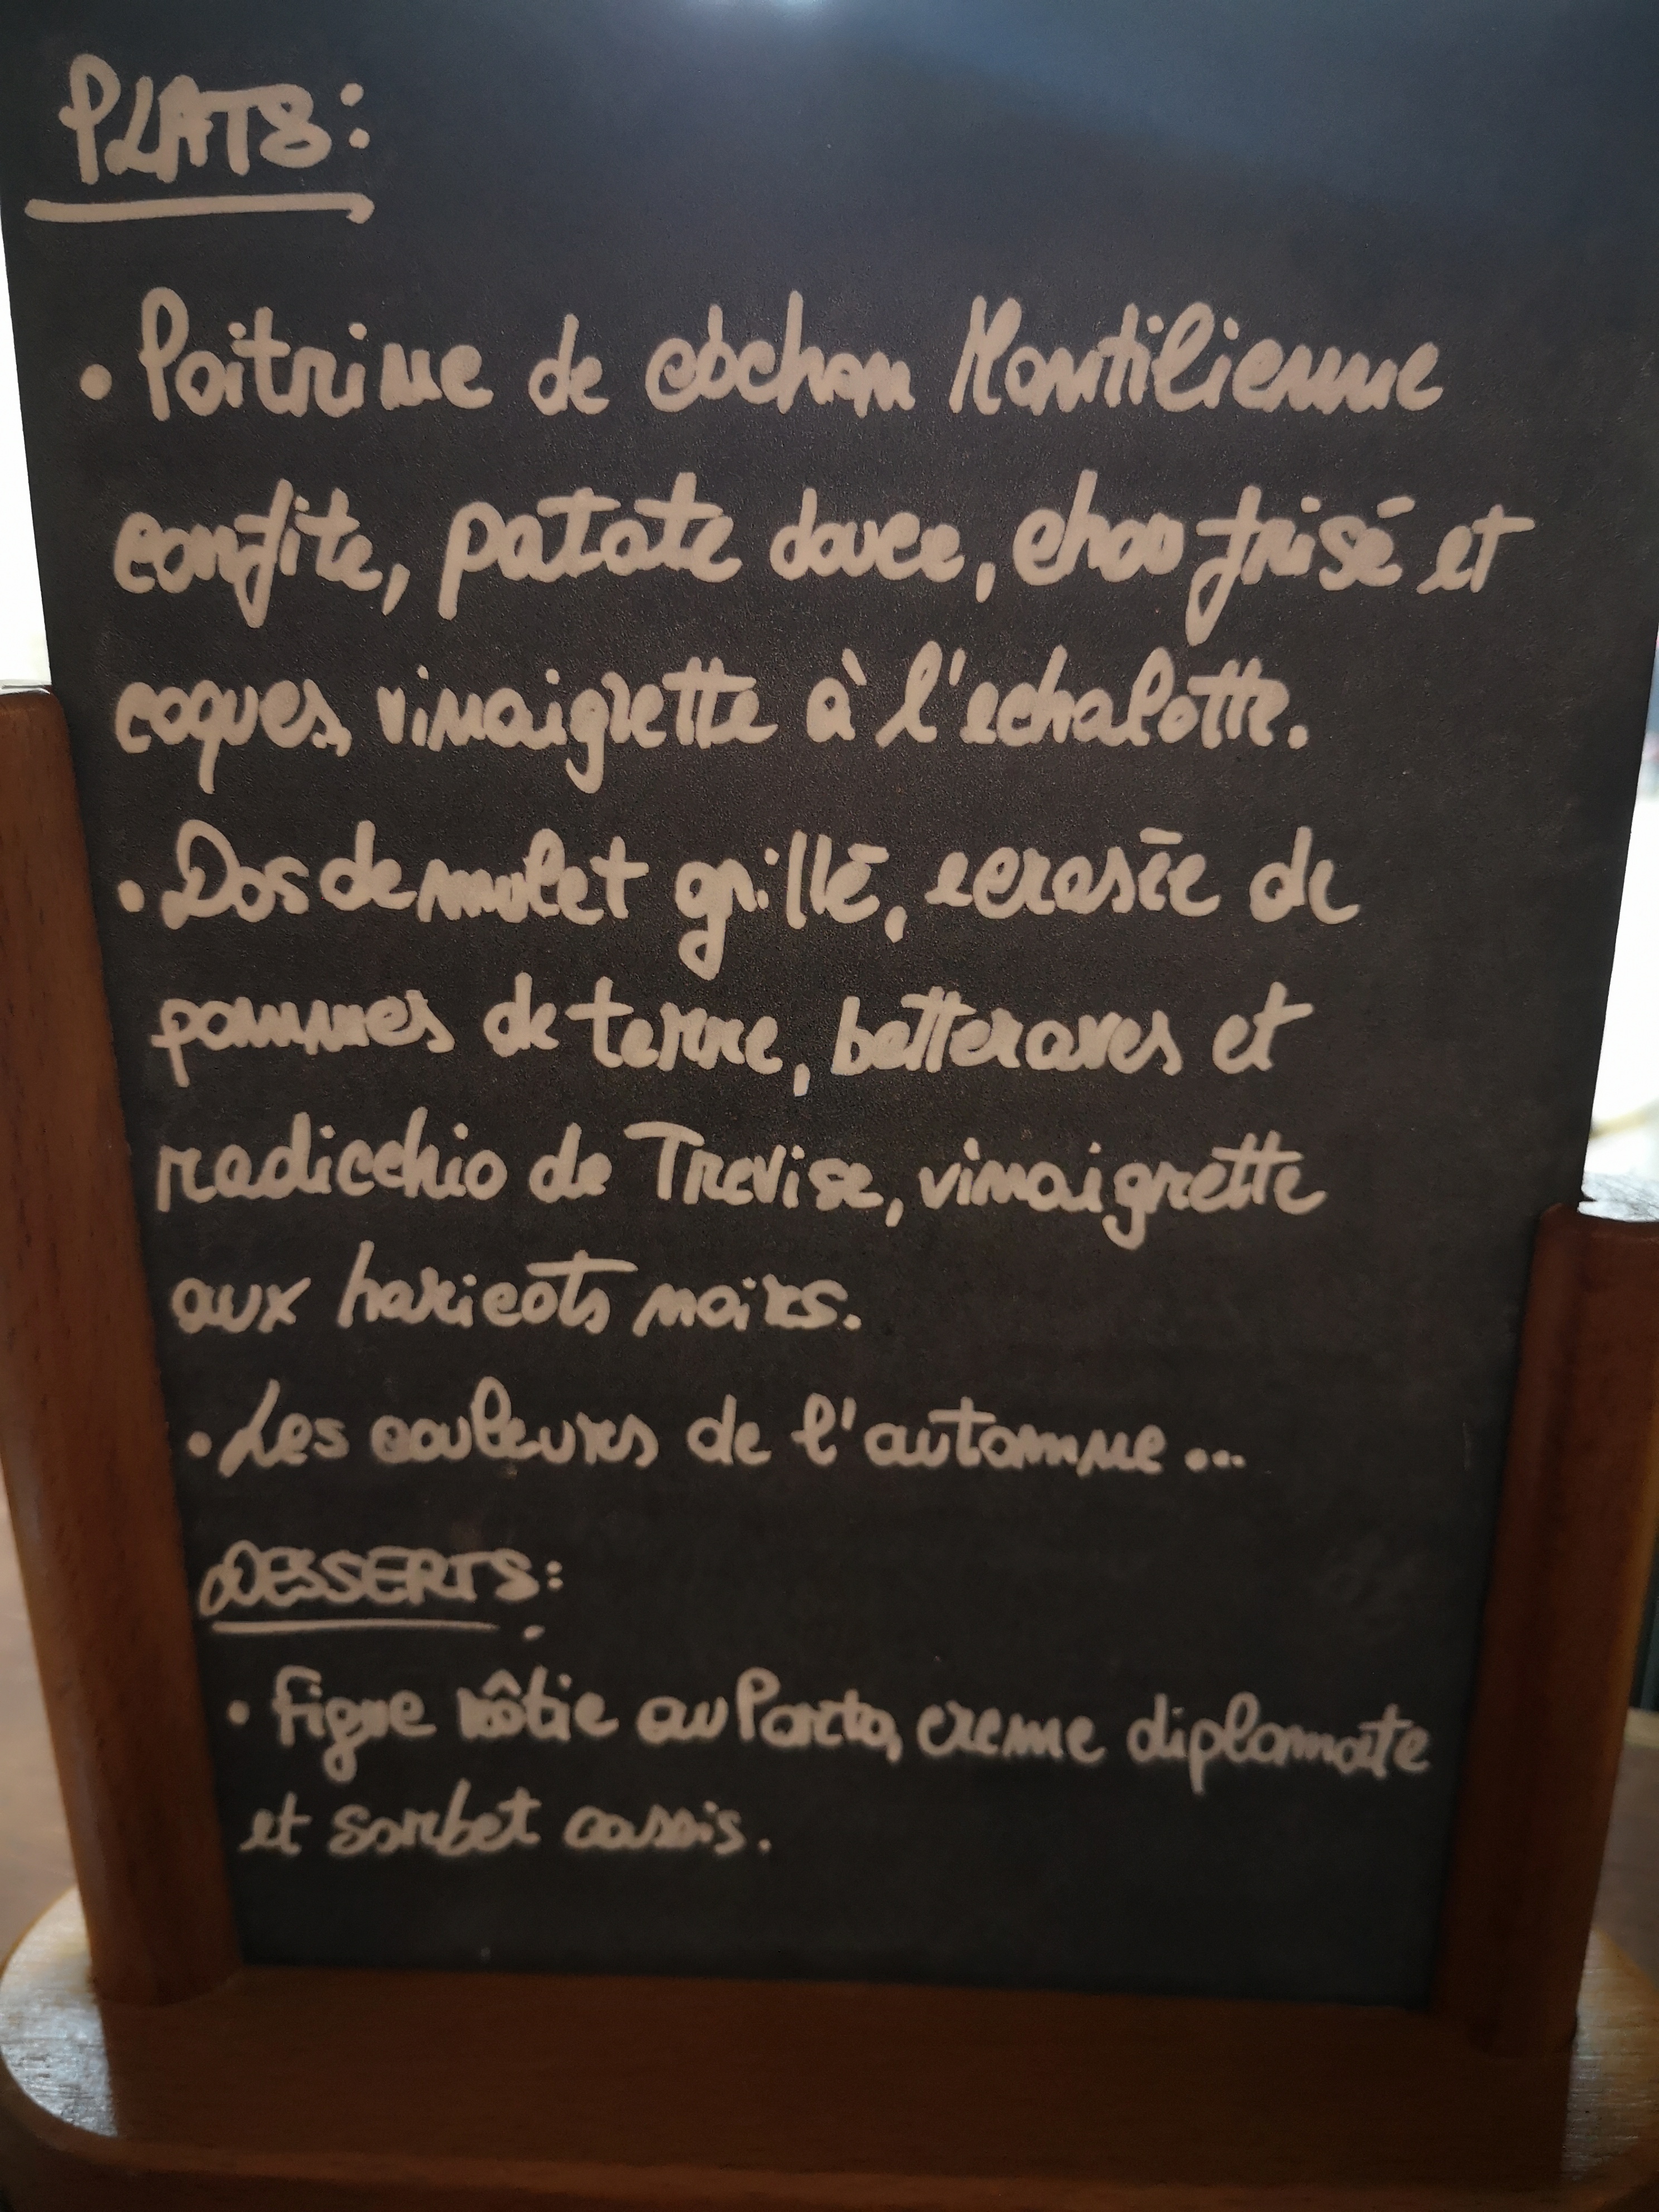 PLATS:
• Poitrine de cochon Montilienne
confite, patate douce, chou frisé et
coques, vinaigrette à l'echalotte.
• Dos de mulet grillé, ecrasée de
pommes de terre, betteraves et
radicchio de Trevise, vinaigrette
aux haricots noirs.
• Les couleurs de l'automne...
DESSERTS:
• Figue rôtie au Porto, creme diplomate
et sorbet cassis.